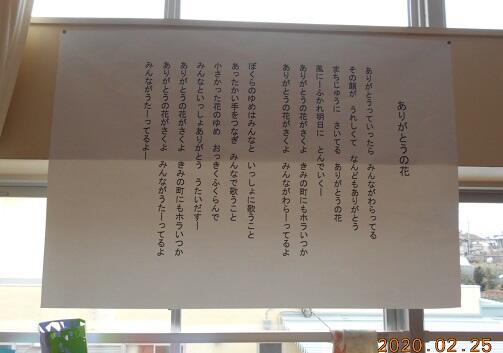 ありがとうの花
ありがとうっていったら みんながわらってる
その顔が うれしくて なんどもありがとう
まちじゅうに さいてる ありがとうの花
風にーふかれ明日に とんでいくー
ありがとうの花がさくよ きみの町にもホラいつか
ありがとうの花がさくよ みんながわらーってるよ
ぼくらのゆめはみんなと いっしょに歌うこと
あったかい手をつなぎ みんなで歌うこと
小さかった花のゆめ おっきくふくらんで
みんなといっしょありがとう うたいだすー
ありがとうの花がさくよ きみの町にもホラいつか
ありがとうの花がさくよ みんながうたーってるよ
みんながうたーってるよー
2020.02.25